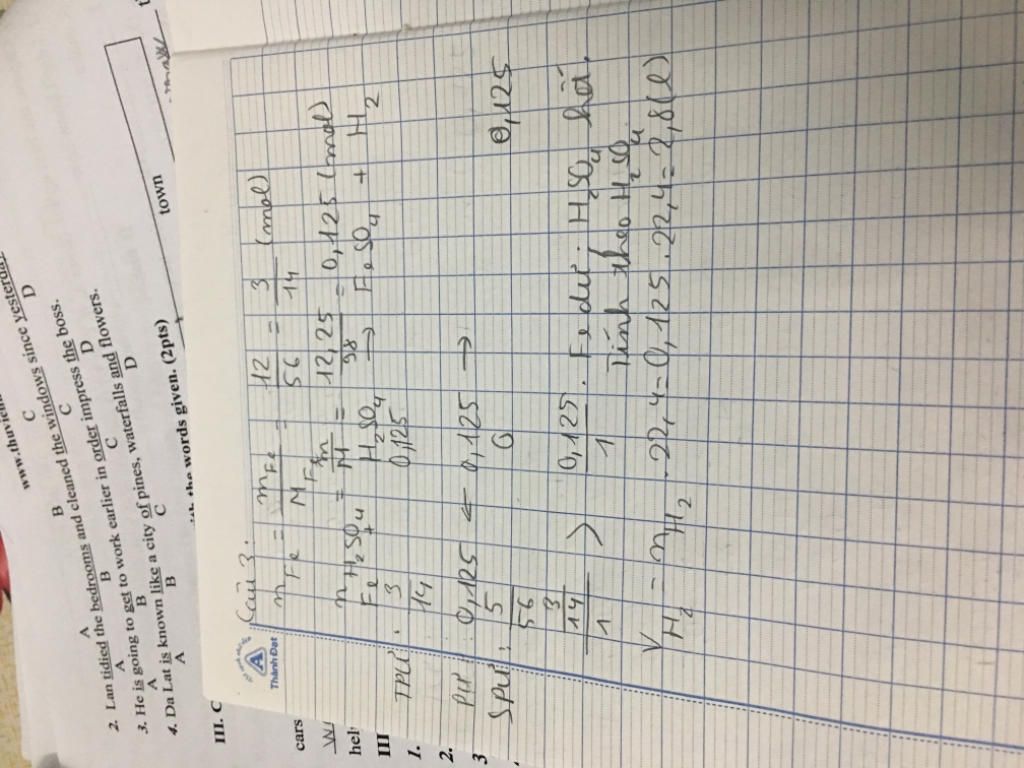 www.thuvien
C D
the windows since yesterday
A B C
2. Lan tidied the bedrooms and cleaned the windows since yesterday.
A B C D
3. He is going to get to work earlier in order impress the boss.
A B C D
4. Da Lat is known like a city of pines, waterfalls and flowers.
A B C D
III. C
with the words given. (2pts)
town
cars
hel
III
1.
2.
3
Thành Đạt
Câu 3.
n Fe = m Fe / M Fe = 12/56 = 3/14 (mol)
n H2SO4 = m/M = 12,25/98 = 0,125 (mol)
Fe + H2SO4 → FeSO4 + H2
TPƯ: 3/14 0,125
PƯ: 0,125 ← 0,125 → 0,125
SPƯ: 5/56 0
3/14 / 1 > 0,125 / 1 . Fe dư. H2SO4 hết.
Tính theo H2SO4.
V H2 = n H2 . 22,4 = 0,125 . 22,4 = 2,8 (l)